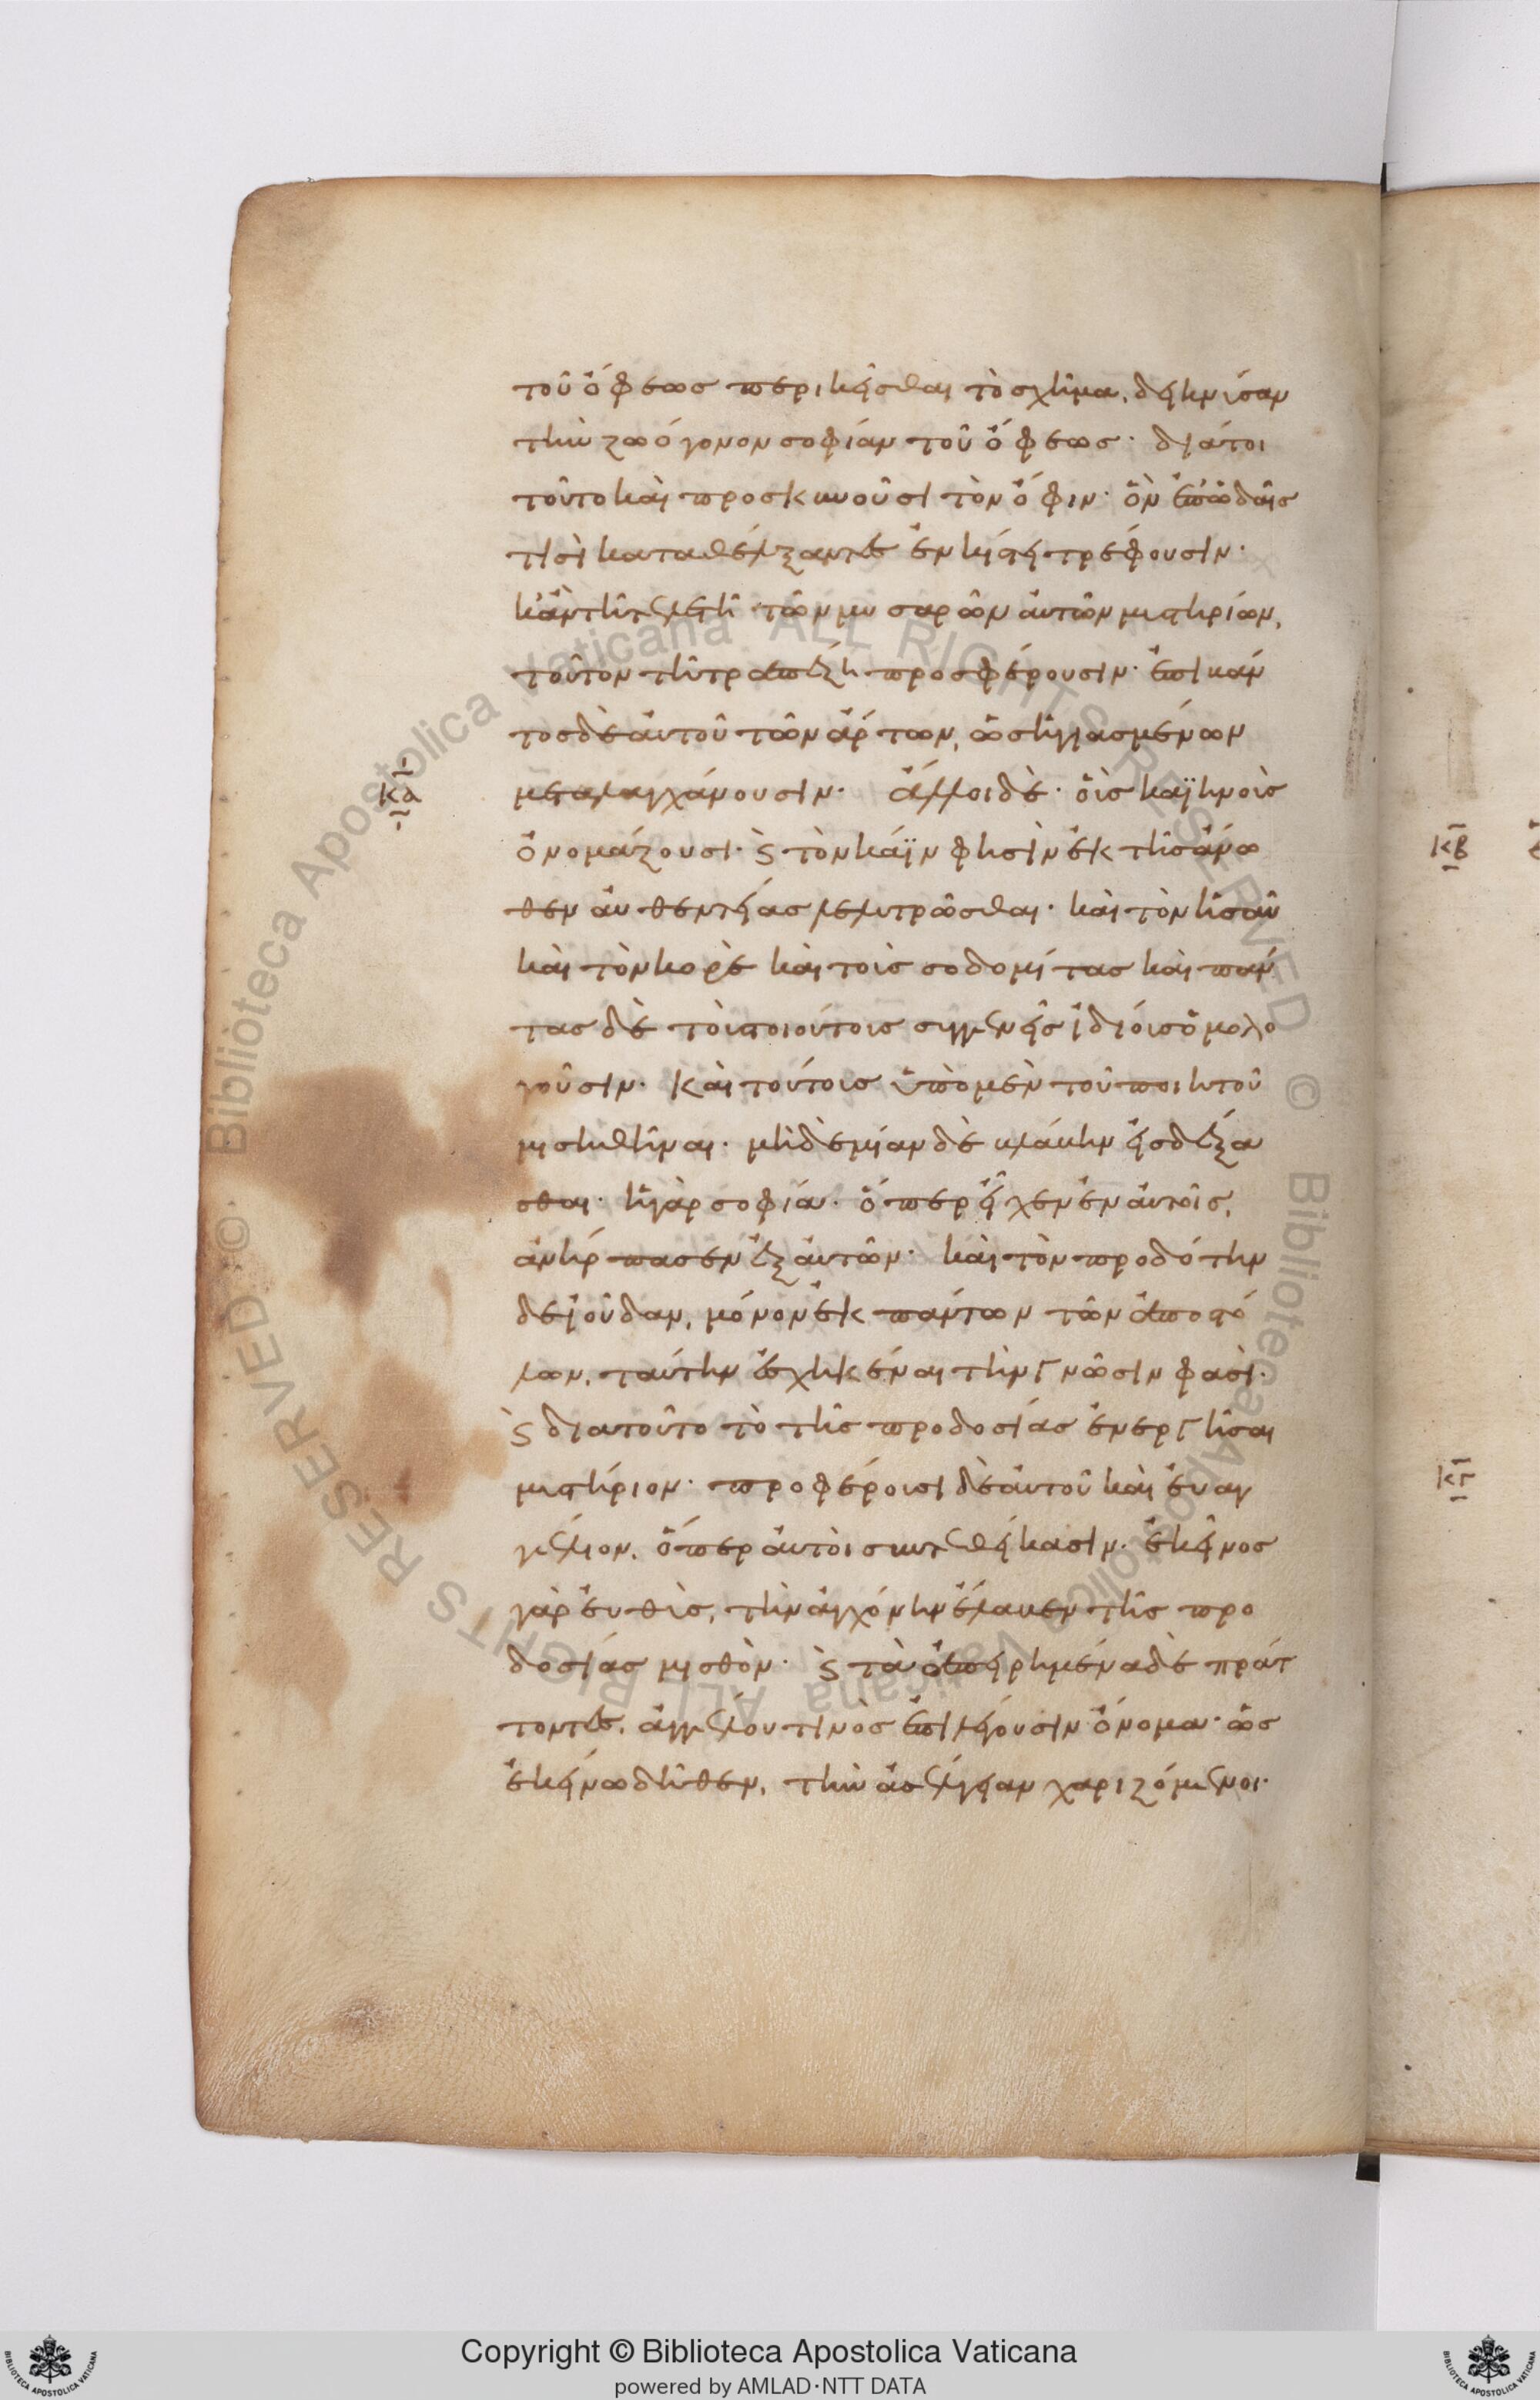 τοῦ ὄφεως περικεῖσθαι τὸ σχῆμα, δεικνύσαν
τὴν ζωόγονον σοφίαν τοῦ ὄφεως· διάτοι
τοῦτο καὶ προσκυνοῦσι τὸν ὄφιν· ὃν ἐπωδαῖς
τισὶ καταθέλξαντες ἐν κίστη τρέφουσιν·
κἀν τῆ τελετῆ τῶν μυσαρῶν αὐτῶν μυστηρίων,
τοῦτον τῆ τραπέζη προσφέρουσιν· ἐπικάν
τος δὲ αὐτοῦ τῶν ἄρτων, ὡς ἡγιασμένων
κα μεταλαγχάνουσιν· ἄλλοι δὲ· οἷς καϊηνοὶς
ὀνομάζουσι· ϛ τὸν κάϊν φησὶν ἐκ τῆς ἄνω
θεν αὐθεντείας λελυτρῶσθαι· καὶ τὸν ἠσαῦ
καὶ τὸν κορὲ καὶ τοὶς σοδομίτας καὶ πάν
τας δὲ τοὶς τοιούτοις συγγενεῖς ἰδίοις ὁμολο
γοῦσιν· καὶ τούτοις ὑπὸ μὲν τοῦ ποιητοῦ
μισηθῆναι· μηδὲ μίαν δὲ βλάβην εἰσδέξα
σθαι· ἡ γὰρ σοφία· ὅπερ εἶχεν ἐν αὐτοῖς,
ἀνήρπασεν ἐξ αὐτῶν· καὶ τὸν προδότην
δὲ ἰούδαν, μόνον ἐκ πάντων τῶν ἀποστό
λων, ταύτην ἐσχηκέναι τὴν γνῶσιν φασὶ·
ϛ διατοῦτο τὸ τῆς προδοσίας ἐνεργῆσαι
μυστήριον· προφέροισι δὲ αὐτοῦ καὶ εὐαγ
γέλιον, ὅπερ αὐτοὶ συντεθείκασιν· ἐκεῖνος
γὰρ εὐθὶς, τὴν ἀγχόνην ἔλαβεν τῆς προ
δοσίας μισθὸν· ϛ τὰ ἀπειρημένα δὲ πράτ
τοντες, ἀγγέλου τινὸς ἐπιλέγουσιν ὄνομα· ὡς
ἐκείνω δῆθεν, τὴν ἀσέλγειαν χαριζόμενοι·
κβ
κγ
Copyright © Biblioteca Apostolica Vaticana
powered by AMLAD·NTT DATA